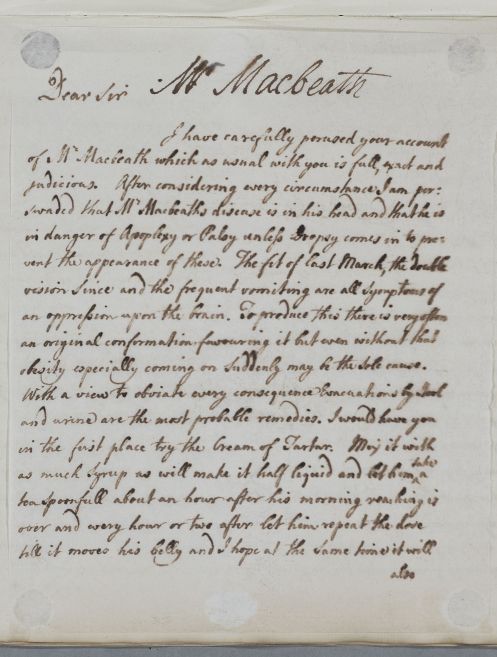 Dear Sir Mr Macbeath
I have carefully perused your account
of Mr Macbeath which as usual with you is full, exact and
judicious. After considering every circumstance I am per:
swaded that Mr Macbeaths disease is in his head and that he is
in danger of Apoplexy or Palsy unless Dropsy comes in to pre-
vent the appearance of these. The fit of last March, the double
vision since and the frequent vomiting are all symptoms of
an oppression upon the brain. To produce this there is very often
an original conformation favouring it but even without that
obesity especially coming on suddenly may be the sole cause.
With a view to obviate every consequence Evacuations by stool
and urine are the most probable remedies. I would have you
in the first place try the Cream of Tartar. Mix it with
as much syrup as will make it half liquid and let him take a
teaspoonfull about an hour after his morning reaching is
over and every hour or two after let him repeat the dose
till it moves his belly and I hope at the same time it will
also